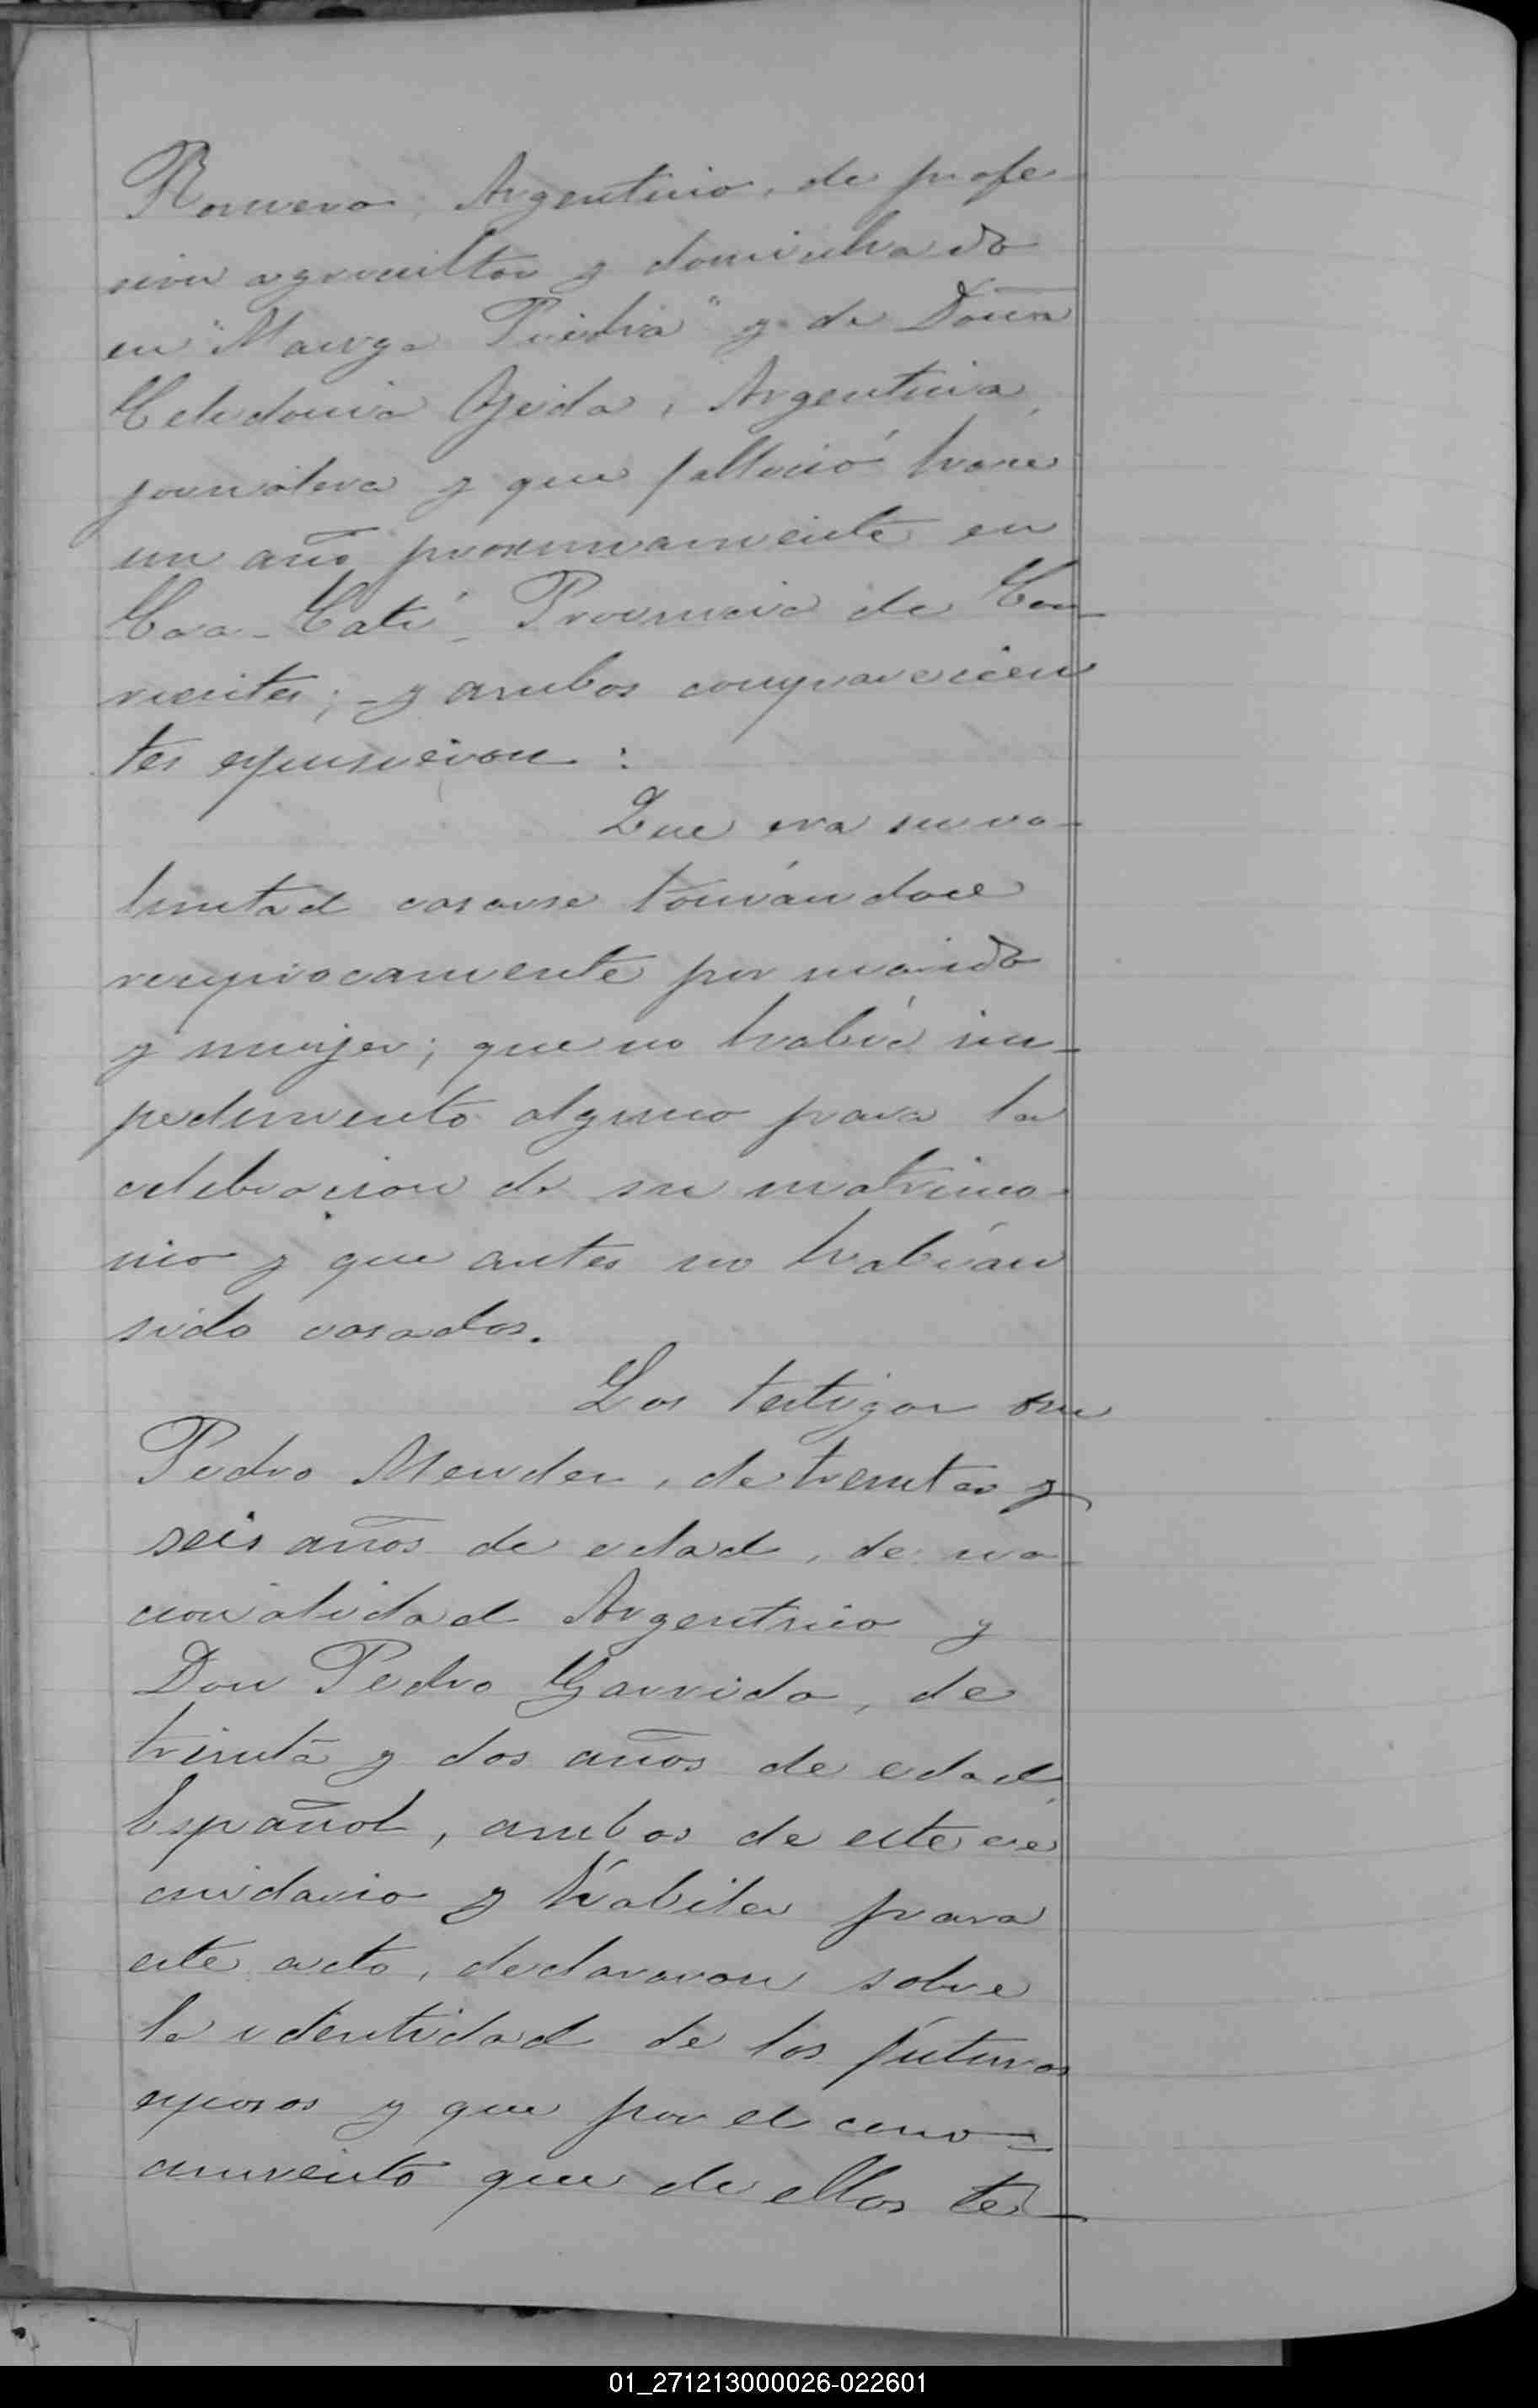 Romero, Argentino, de profe
sion agricultor y domiciliado
en "Manga Piedra" y de Doña
Celedonia Ojeda, Argentina,
jornalera y que fallecio hace
un año proximamente en
Caa-Catí, Provincia de Cor
rientes; y ambos comparecien
tes expusieron:
Que era su vo-
luntad casarse tomándoce
reciprocamente por marido
y mujer; que no había im-
pedimento alguno para la
celebracion de su matrimo
nio y que antes no habían
sido casados.
Los testigos
Pedro Mendez, de treinta y
seis años de edad, de na
cionalidad Argentino y
Don Pedro Garrido, de
treinta y dos años de edad,
Español, ambos de este ve
cindario y hábiles para
este acto, declararon sobre
la identidad de los futuros
esposos y que por el cono-
cimiento que de ellos te-
01_271213000026-022601